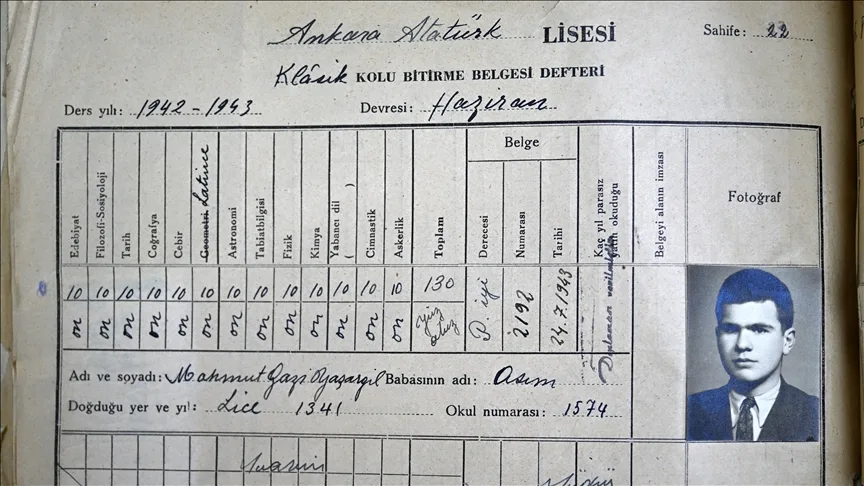 Ankara Atatürk LİSESİ Sahife: 22
Klâsik KOLU BİTİRME BELGESİ DEFTERİ
Ders yılı: 1942-1943 Devresi: Haziran
Belge
Edebiyat Filozofi-Sosiyoloji Tarih Coğrafya Cebir Geometri Latince Astronomi Tabiatbilgisi Fizik Kimya Yabancı dil ( ) Cimnastik Askerlik Toplam Derecesi Numarası Tarihi Kaç yıl parasız yatılı okuduğu Belgeyi alanın imzası Fotoğraf
10 10 10 10 10 10 10 10 10 10 10 10 10 130 P. iyi 2192 24.7.1943
on on on on on on on on on on on on on yüz otuz
Adı ve soyadı: Mahmut Gazi Yaşargil Babasının adı: Asım
Doğduğu yer ve yıl: Lice 1341 Okul numarası: 1574
Müdür